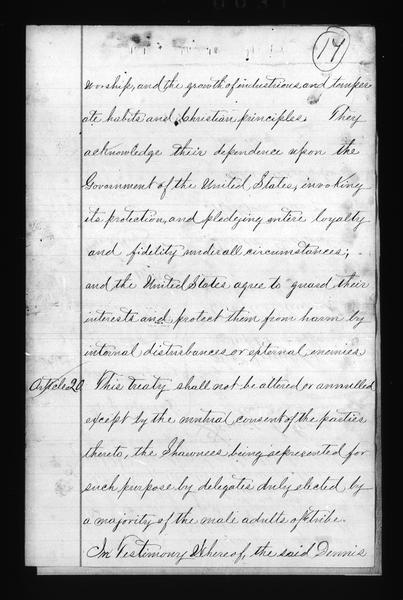 14
worship, and the growth of industrious and temper
ate habits and Christian principles. They
acknowledge their dependence upon the
Government of the United States, invoking
its protection, and pledging entire loyalty
and fidelity under all circumstances;
and the United States agree to guard their
interests and protect them from harm by
internal disturbances or external enemies
Article 20 This treaty shall not be altered or annulled
except by the mutual consent of the parties
thereto, the Shawnees being represented for
such purpose by delegates duly elected by
a majority of the male adults of tribe.
In Testimony Whereof, the said Dennis